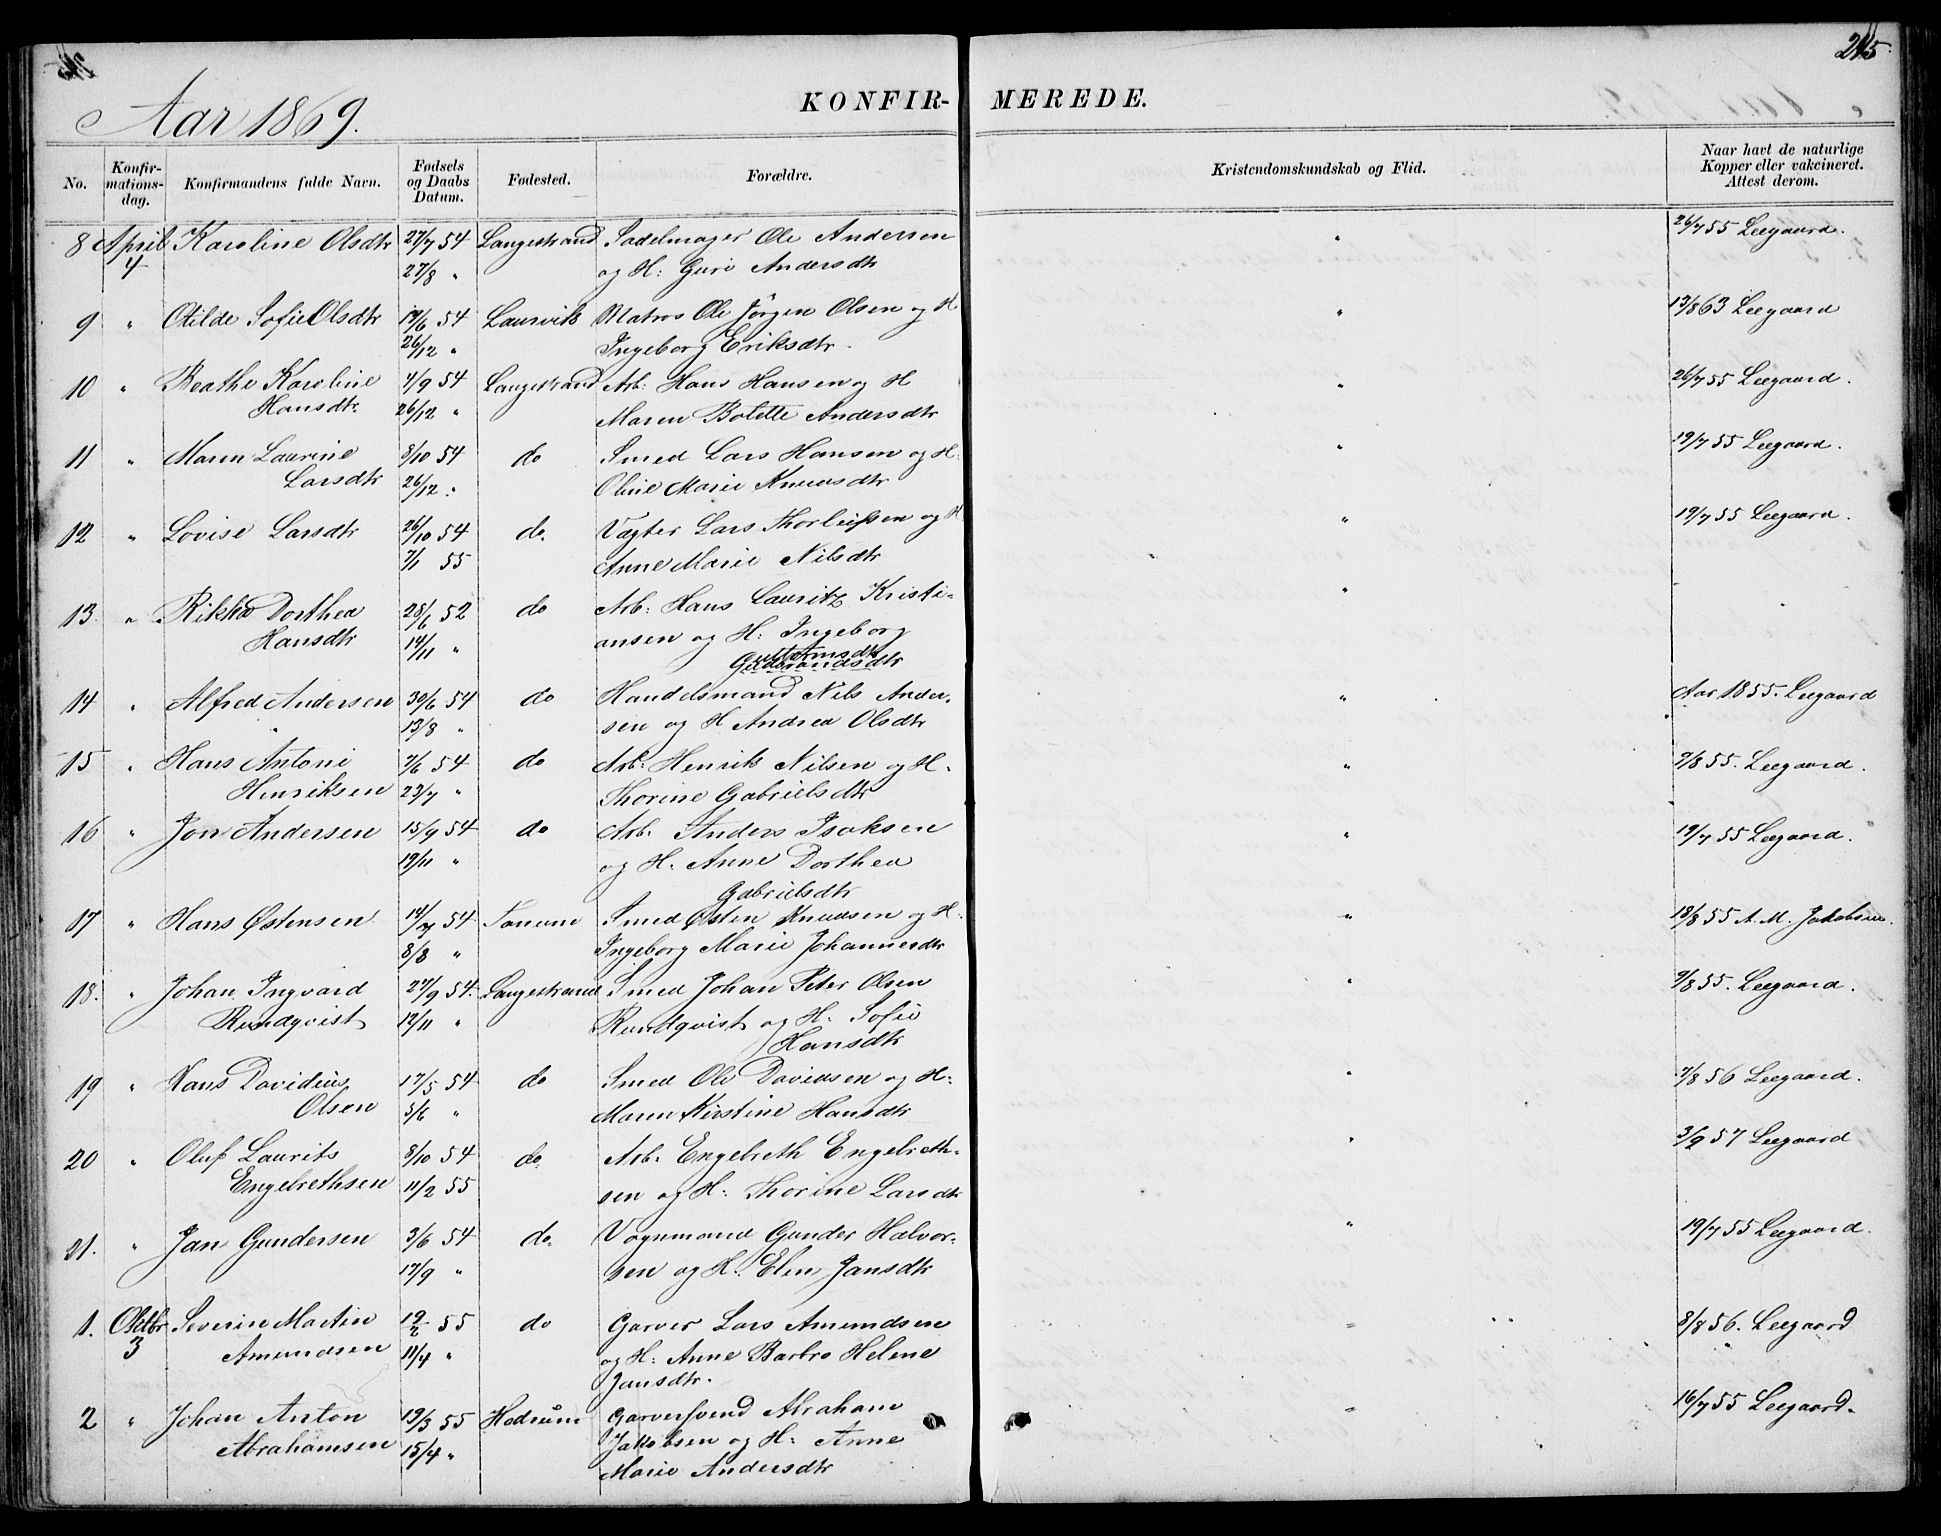 245
Aar 1869.
KONFIR- MEREDE.
No. Konfir-mations-dag. Konfirmandens fulde Navn. Fødsels og Daabs Datum. Fødested. Forældre. Kristendomskundskab og Flid. Naar havt de naturlige Kopper eller vakcineret. Attest derom.
8 April Karoline Olsdtr 27/7 54 Langestrand Sadelmager Ole Andersen " 26/7 55 Leegaard.
4 27/8 " og H: Guri Andersdtr
9 " Otilde Sofie Olsdtr 19/6 54 Laurvik Matros Ole Jörgen Olsen og H " 13/8 63 Leegaard
26/12 " Ingeborg Eriksdtr.
10 " Beathe Karoline 4/9 54 Langestrand Arb: Hans Hansen og H " 26/7 55 Leegaard.
Hansdtr. 26/12 " Maren Bolette Andersdtr
11 " Maren Laurine 8/10 54 do Smed Lars Hansen og H. " 19/7 55 Leegaard.
Larsdtr 26/12 " Oline Marie Knudsdtr
12 " Lovise Larsdtr 26/10 54 do. Vægter Lars Thorleifsen og H. " 19/7 55 Leegaard.
7/1 55 Anne Marie Nilsdtr
13. " Rikka Dorthea 28/6 52 do Arb: Hans Lauritz Kristi- "
Hansdtr 14/11 " ansen og H: Ingeborg
Guttormsdtr
Gudbrandsdtr
14 " Alfred Andersen 30/6 54 do Handelsmand Nils Ander- " Aar 1855. Leegaard
13/8 " sen og H Andrea Olsdtr
15 " Hans Antoni 7/6 54 do Arb: Henrik Nilsen og H. " 9/8 55. Leegaard.
Henriksen 23/7 " Thorine Gabrielsdtr
16 " Jon Andersen 15/9 54 do Arb. Anders Isaksen " 19/7 55 Leegaard.
19/11 " og H: Anne Dorthea
Gabrielsdtr
17 " Hans Østensen 14/7 54 Tanum Smed Østen Knudsen og H. " 18/8 55 A. M. Jakobsen.
8/8 " Ingeborg Marie Johannesdtr
18. " Johan Ingvard 27/9 54. Langestrand Smed Johan Peter Olsen " 9/8 55. Leegaard.
Rundqvist 12/11 " Rundqvist og H. Sofie
Hansdtr
19 " Hans Davidius 17/5 54 do Smed Ole Davidsen og H: " 7/8 56 Leegaard.
Olsen 5/6 " Maren Kirstine Hansdtr
20 " Oluf Laurits 8/10 54 do. Arb. Engebreth Engebreth- " 3/9 57 Leegaard
Engebrethsen 11/2 55 sen og H: Thorine Larsdtr
21. " Jan Gundersen 3/6 54 do. Vognmand Gunder Halvor- " 19/7 55 Leegaard.
17/9 " sen og H: Elen Jansdtr
1. Oktbr Severin Martin 19/2 55 do Garver Lars Amundsen " 8/8 56. Leegaard
3 Amundsen 11/4 " og H: Anne Barbro Helene
Jansdtr.
2 " Johan Anton 19/3 55 Hedrum Garversvend Abraham " 16/7 55 Leegaard.
Abrahamsen 15/4 " Jakobsen og H: Anne
Marie Andersdtr